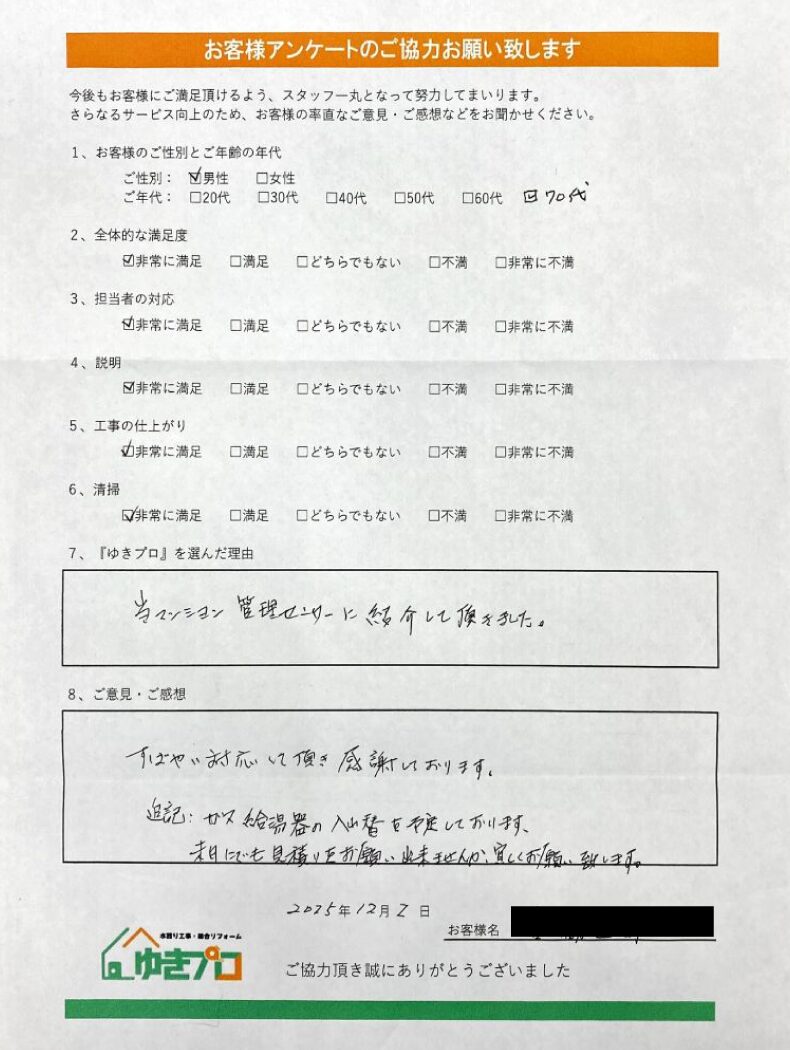 お客様アンケートのご協力お願い致します
今後もお客様にご満足頂けるよう、スタッフ一丸となって努力してまいります。
さらなるサービス向上のため、お客様の率直なご意見・ご感想などをお聞かせください。
1、お客様のご性別とご年齢の年代
ご性別： ☑男性 □女性
ご年代： □20代 □30代 □40代 □50代 □60代 ☑70代
2、全体的な満足度
☑非常に満足 □満足 □どちらでもない □不満 □非常に不満
3、担当者の対応
☑非常に満足 □満足 □どちらでもない □不満 □非常に不満
4、説明
☑非常に満足 □満足 □どちらでもない □不満 □非常に不満
5、工事の仕上がり
☑非常に満足 □満足 □どちらでもない □不満 □非常に不満
6、清掃
☑非常に満足 □満足 □どちらでもない □不満 □非常に不満
7、『ゆきプロ』を選んだ理由
当マンション管理センターに紹介して頂きました。
8、ご意見・ご感想
すばやい対応して頂き感謝しております。
追記：ガス給湯器の入替を予定しております、
末日にでも見積りをお願い出来ませんか、宜しくお願い致します。
2025年12月2日
お客様名
水廻り工事・総合リフォーム
ゆきプロ
ご協力頂き誠にありがとうございました